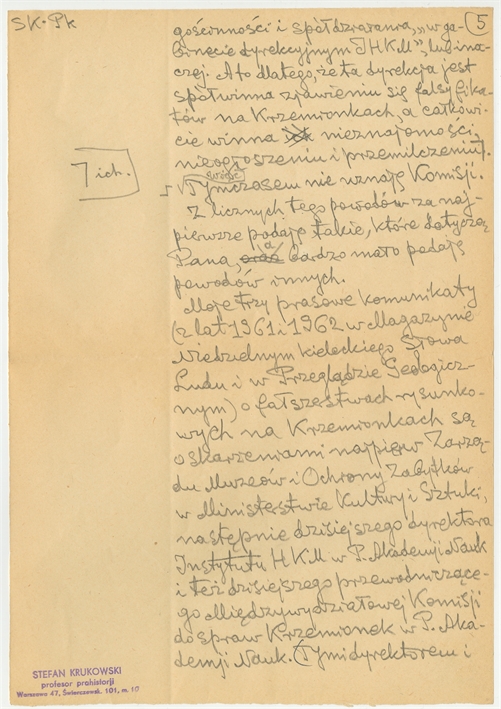 SK-Pk
5
gościnności i spółdziałania, „w ga-
binecie dyrekcyjnym IHKM”, lub ina-
czej. A to dlatego, że ta dyrekcja jest
spółwinna zjawieniu się falsyfika-
tów na Krzemionkach, a całkowi-
cie winna nieznajomości,
nieogłoszeniu i przemilczeniu
7 ich.
Tymczasem nie uznają Komisji.
Z licznych tego powodów za naj-
pierwsze podają takie, które dotyczą
Pana, a bardzo mało podają
powodów innych.
Moje trzy prasowe komunikaty
(z lat 1961 i 1962 w Magazynie
Niedzielnym kieleckiego Słowa
Ludu i w Przeglądzie Geologicz-
nym) o fałszerstwach rysunko-
wych na Krzemionkach są
oskarżeniami najpierw Zarzą-
du Muzeów i Ochrony Zabytków
w Ministerstwie Kultury i Sztuki,
następnie dzisiejszego dyrektora
Instytutu HKM w P. Akademji Nauk
i też dzisiejszego przewodniczące-
go Międzywydziałowej Komisji
do spraw Krzemionek w P. Aka-
demji Nauk. (Tymi dyrektorem i
STEFAN KRUKOWSKI
profesor prahistorji
Warszawa 47, Świerczewsk. 101, m. 10